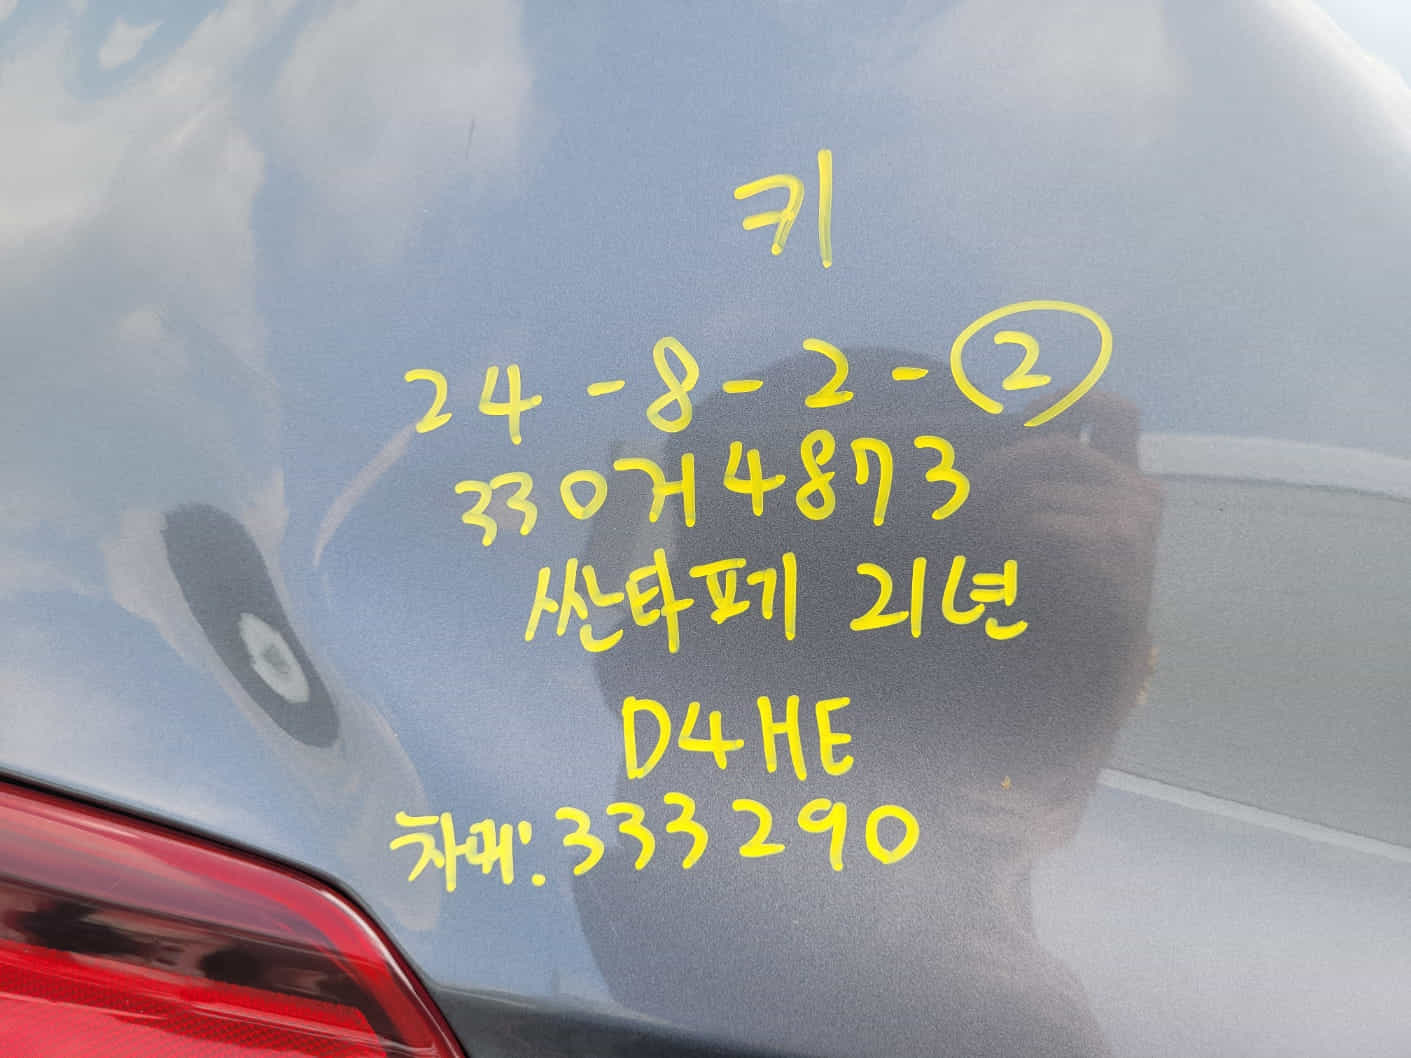 키
24-8-2-②
330거4873
싼타페 21년
D4HE
차대: 333290